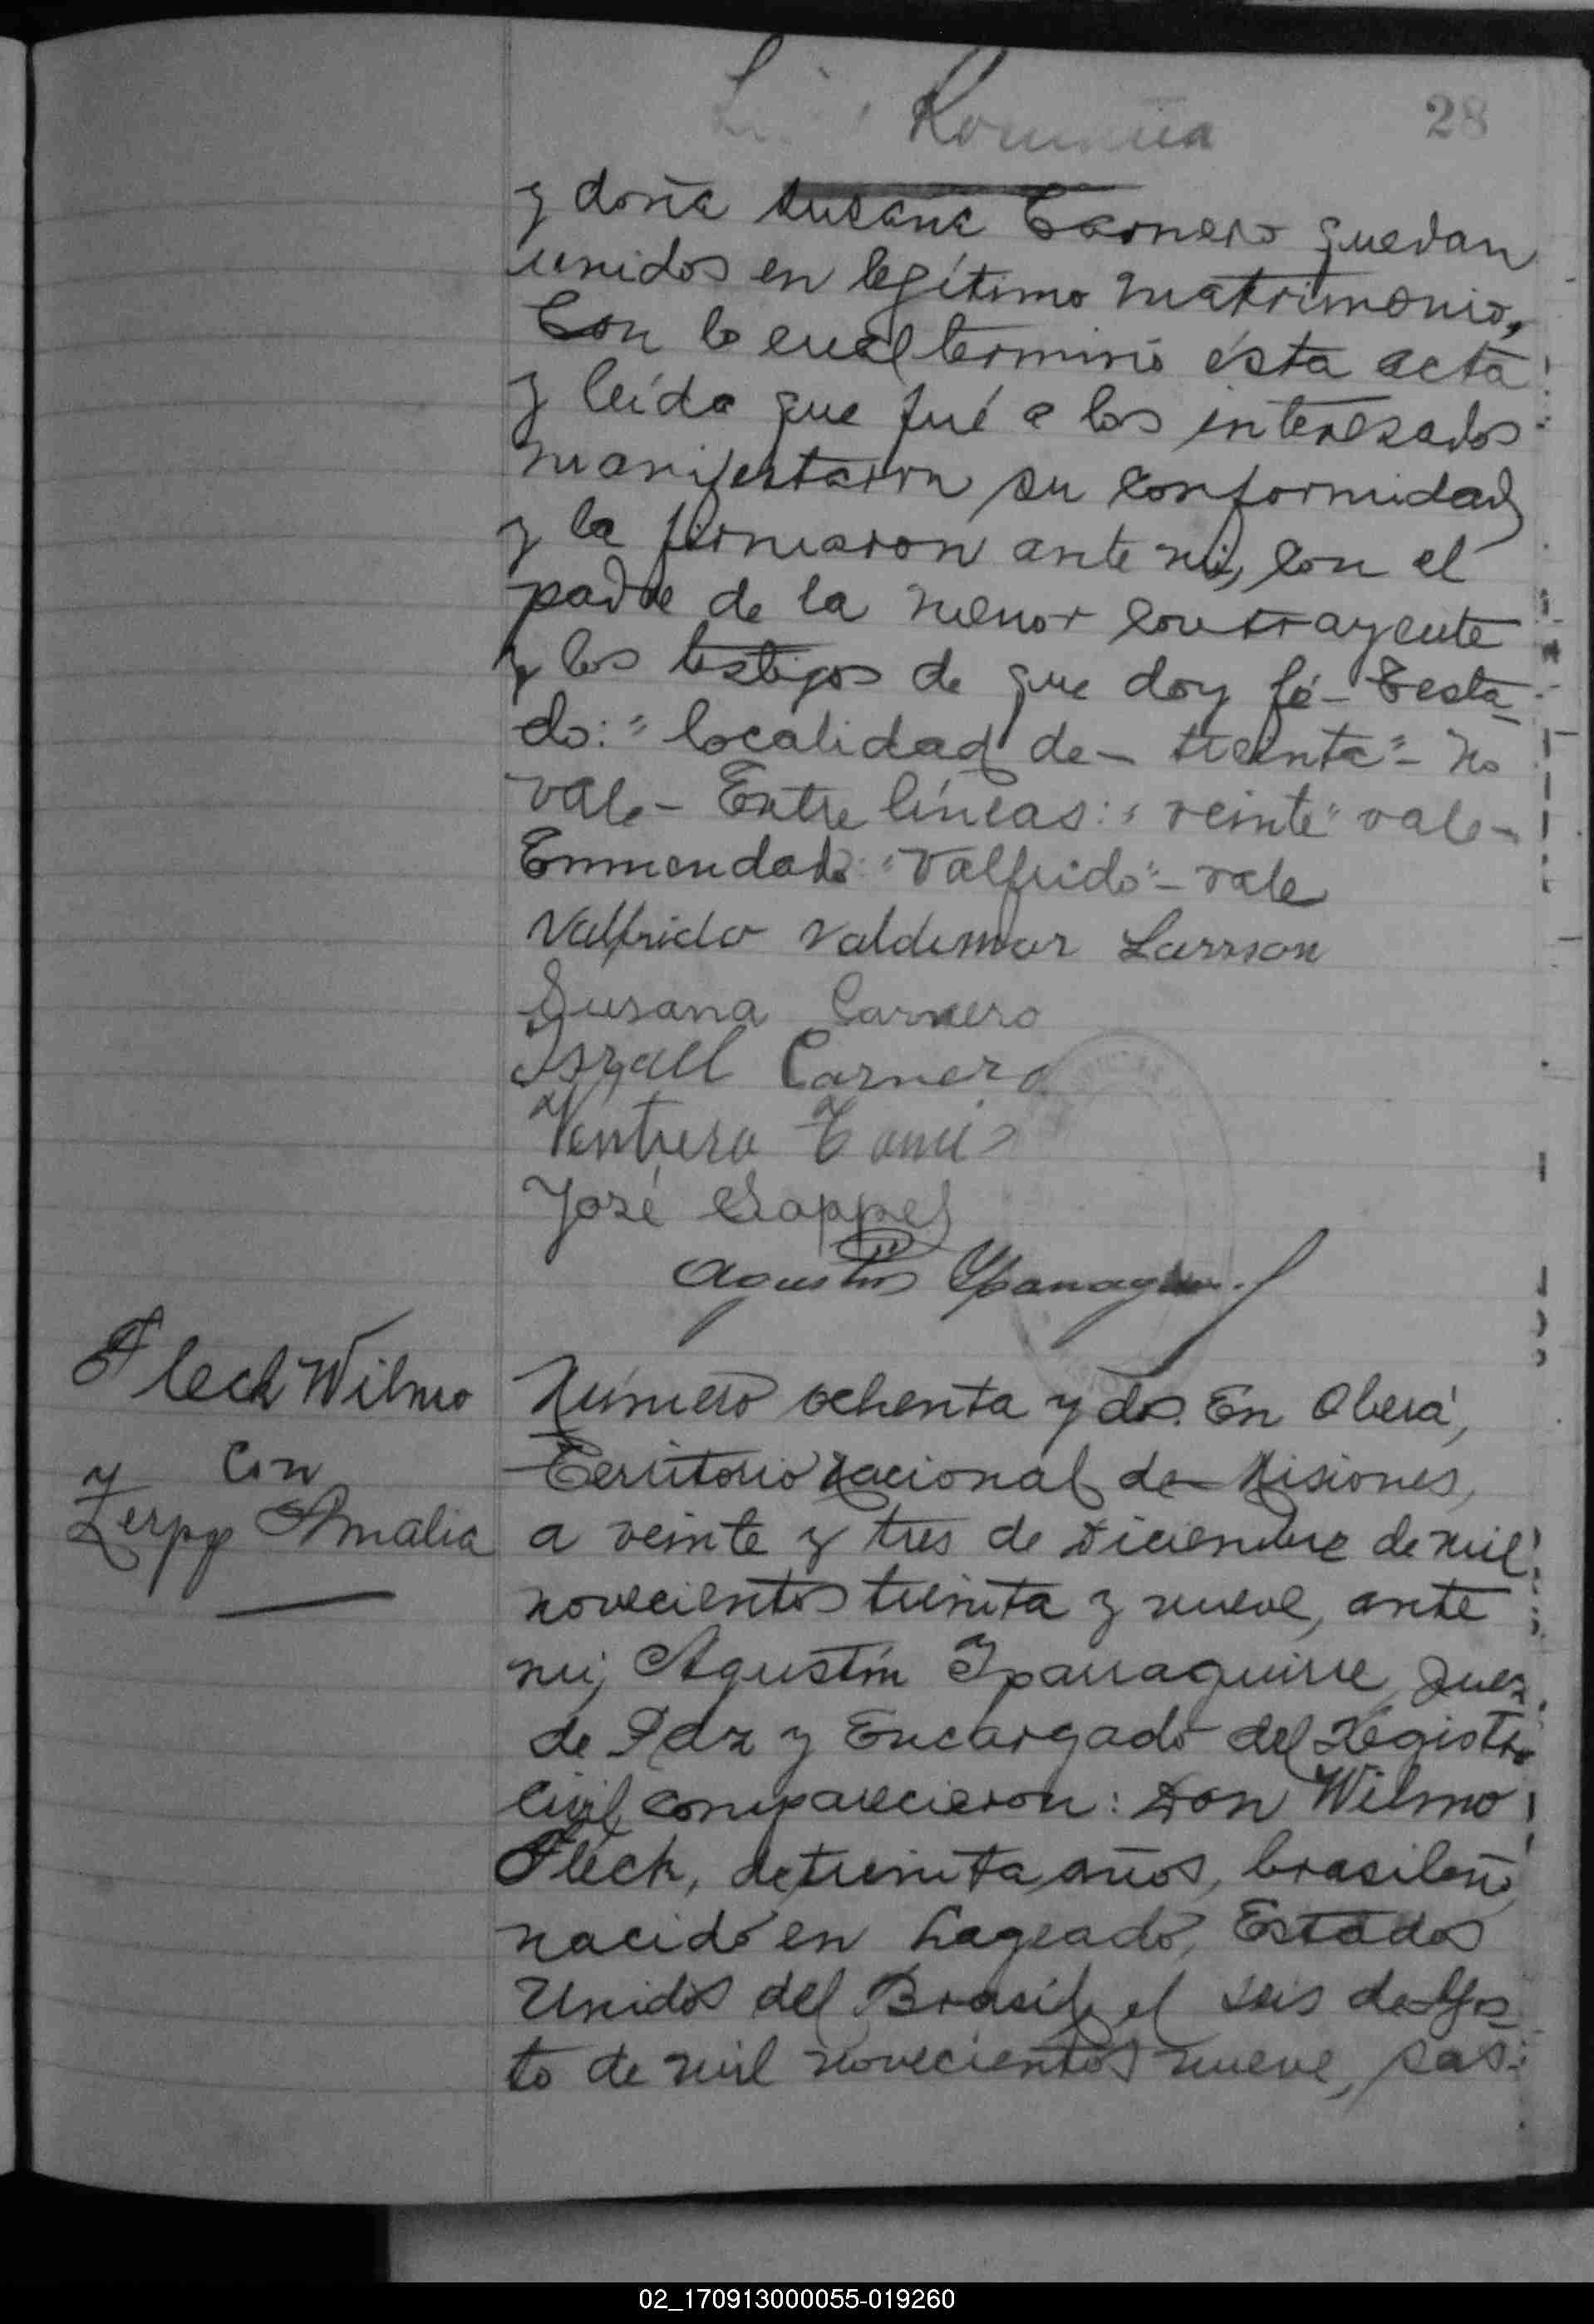 28
y doña Susana Carnero quedan
unidos en legítimo matrimonio,
Con lo cual terminó ésta acta
y leída que fué a los interesados
manifestaron su conformidad
y la firmaron ante mí, con el
padre de la menor contrayente
y los testigos de que doy fé - Testa-
do: "localidad de - treinta" - no
vale - Entre líneas: "veinte" vale -
Enmendado: "Valfrido" - vale
Valfrido Valdemar Larsson
Susana Carnero
Israel Carnero
José
Agustín Yparraguirre
Fleck Wilmo
y con
Zerpp Amalia
Número ochenta y dos. En Oberá,
Territorio Nacional de Misiones,
a veinte y tres de Diciembre de mil
novecientos treinta y nueve, ante
mí, Agustín Yparraguirre, Juez
de Paz y Encargado del Registro
Civil, comparecieron: Don Wilmo
Fleck, de treinta años, brasileño,
nacido en Lageado, Estados
Unidos del Brasil, el seis de Agos-
to de mil novecientos nueve,
02_170913000055-019260